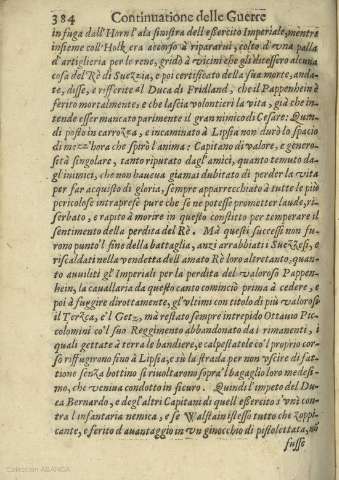 384 Continuatione delle Guerre
in fuga dall'Horn l'ala sinistra dell'esercito Imperiale, mentre
insieme coll'Holk era accorso à ripararui, colto d'vna palla
d'artiglieria per le rene, gridò à vicini che gli dicessero alcuna
cosa del Rè di Suezzia, e poi certificato della sua morte, anda-
te, disse, e rifferite al Duca di Fridland, che il Pappenhein è
ferito mortalmente, e che lascia volontieri la vita, già che in-
tende esser mancato parimente il gran nimico di Cesare; Quin-
di posto in carrozza, e incaminato à Lipsia non durò lo spacio
di mezz'hora che spirò l'anima: Capitano di valore, e genero-
setà singolare, tanto riputato dagl'amici, quanto temuto da-
gl'inimici, che non haueua giamai dubitato di perder la vita
per far acquisto di gloria, sempre apparrecchiato à tutte le più
pericolose intraprese pure che se ne potesse promettere laude, ri-
serbato, e rapito à morire in questo conflitto per temperare il
sentimento della perdita del Rè. Mà questi successi non fu-
rono punto'l fine della battaglia, anzi arrabbiati i Suezzesi, e
riscaldati nella vendetta dell'amato Rè loro altretanto, quan-
to auuiliti gl'Imperiali per la perdita del valoroso Pappen-
hein, la cauallaria da questo canto cominciò prima à cedere, e
poi à fuggire dirottamente, gl'vltimi con titolo di più valorosi
il Terzca, e'l Getz, mà restato sempre intrepido Ottauio Pic-
colomini co'l suo Reggimento abbandonato da i rimanenti, i
quali gettate à terra le bandiere, e calpestatele co'l proprio cor-
so riffugirono sino à Lipsia, e sù la strada per non vscire di fat-
tione senza bottino si riuoltarono sopra'l bagaglio loro medesi-
mo, che veniua condotto in sicuro. Quindi l'impeto del Du-
ca Bernardo, e degl'altri Capitani di quell'esercito s'vnì con-
tra l'infantaria nemica, e se Walstain istesso tutto che zoppi-
cante, e ferito d'auantaggio in vn ginocchio di pistolettata, nõ
fusse
Colección ABANCA